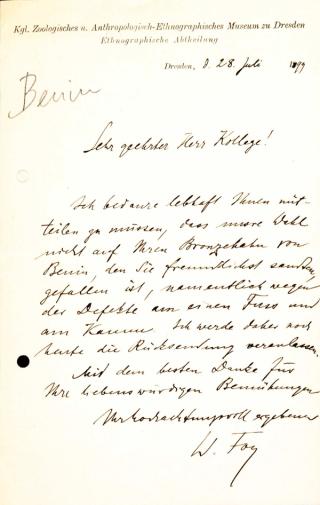 Kgl. Zoologisches u. Anthropologisch-Ethnographisches Museum zu Dresden
Ethnographische Abtheilung
Dresden, d 28. Juli 1899
Benin
Sehr geehrter Herr Kollege!
Ich bedaure lebhaft Ihnen mit-
teilen zu müssen, dass unsre Wahl
nicht auf Ihren Bronzehahn von
Benin, den Sie freundlichst sandten,
gefallen ist, namentlich wegen
der Defekte am einen Fuss und
am Kamm. Ich werde daher noch
heute die Rücksendung veranlassen.
Mit dem besten Danke für
Ihre liebenswürdigen Bemühungen
Ihr hochachtungsvoll ergebener
W. Foy